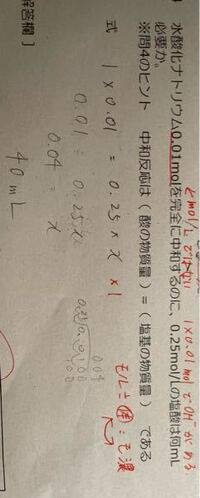 mol/Lではない 1×0.01molでOH⁻がある。
水酸化ナトリウム0.01molを完全に中和するのに、0.25mol/Lの塩酸は何mL
必要か。
※問4のヒント 中和反応は(酸の物質量)=(塩基の物質量)である
式 1×0.01 = 0.25 × x × 1
0.01 = 0.25x
0.04 = x
40mL
解答欄]